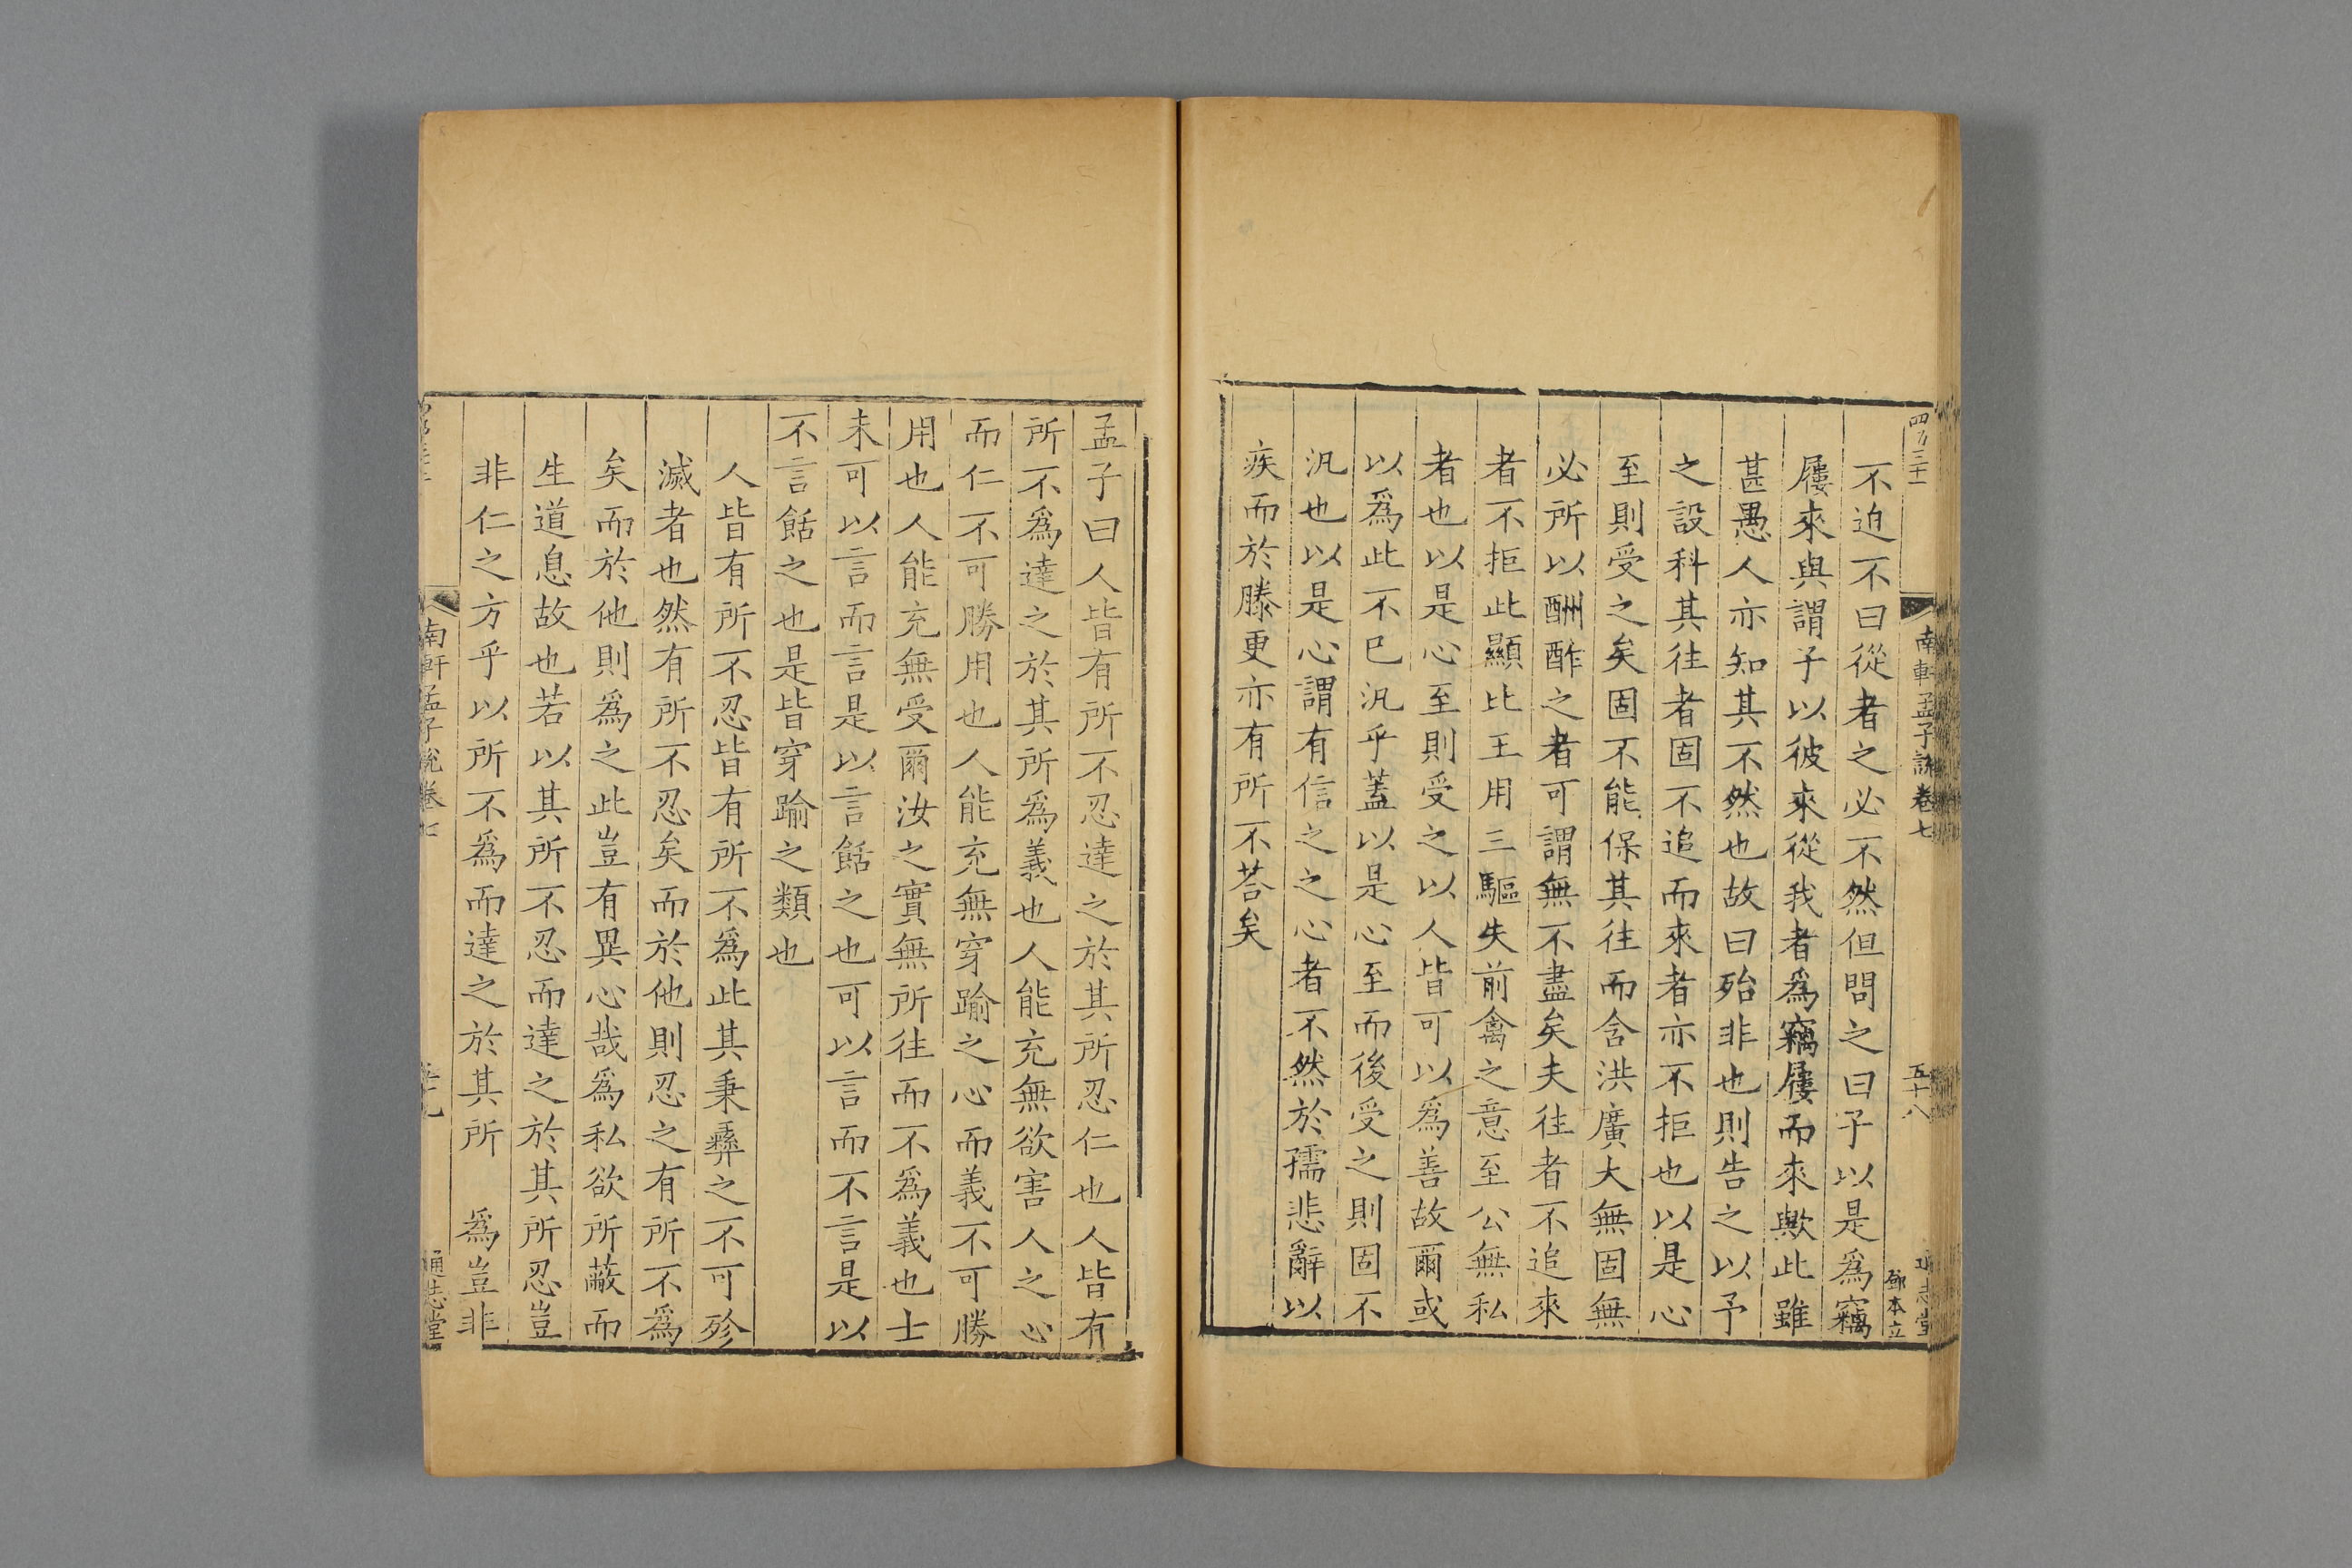 南軒孟子說卷七
五十八
通志堂
鄧本立
不迫不曰從者之必不然但問之曰子以是爲竊
屨來與謂子以彼來從我者爲竊屨而來歟此雖
甚愚人亦知其不然也故曰殆非也則告之以予
之設科其往者固不追而來者亦不拒也以是心
至則受之矣固不能保其往而含洪廣大無固無
必所以酬酢之者可謂無不盡矣夫往者不追來
者不拒此顯比王用三驅失前禽之意至公無私
者也以是心至則受之以人皆可以爲善故爾或
以爲此不已汎乎蓋以是心至而後受之則固不
汎也以是心謂有信之之心者不然於孺悲辭以
疾而於滕更亦有所不荅矣
孟子曰人皆有所不忍達之於其所忍仁也人皆有
所不爲達之於其所爲義也人能充無欲害人之心
而仁不可勝用也人能充無穿踰之心而義不可勝
用也人能充無受爾汝之實無所往而不爲義也士
未可以言而言是以言餂之也可以言而不言是以
不言餂之也是皆穿踰之類也
人皆有所不忍皆有所不爲此其秉彝之不可殄
滅者也然有所不忍矣而於他則忍之有所不爲
矣而於他則爲之此豈有異心哉爲私欲所蔽而
生道息故也若以其所不忍而達之於其所忍豈
非仁之方乎以所不爲而達之於其所 爲豈非
南軒孟子說卷七
通志堂